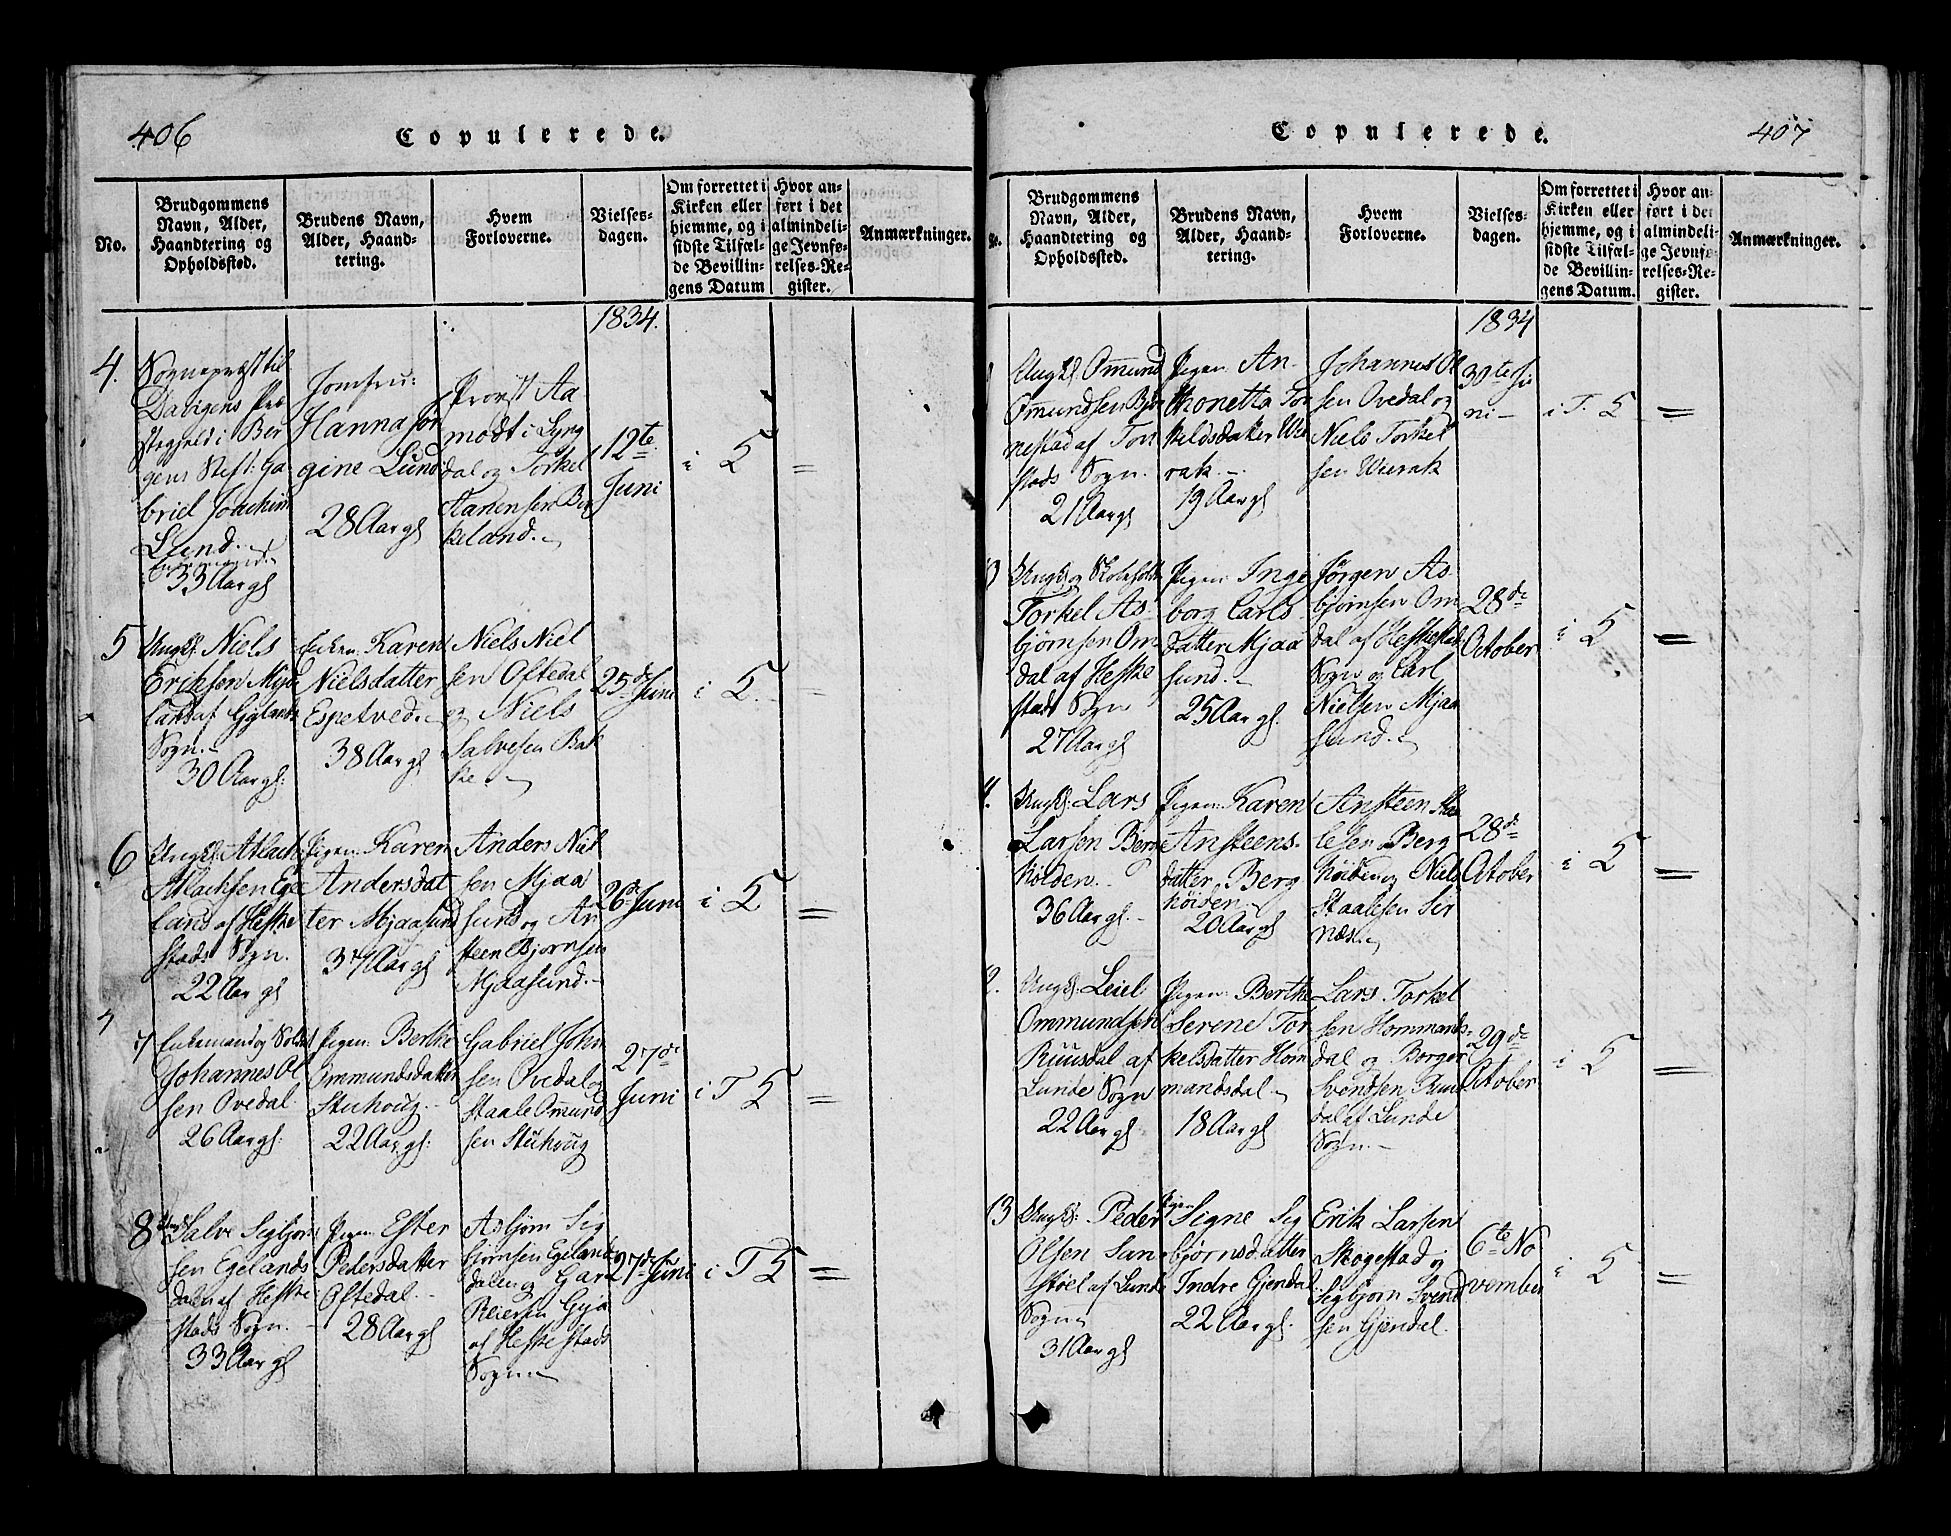 406
Copulerede.
No.
Brudgommens
Navn, Alder,
Haandtering og
Opholdssted.
Brudens Navn,
Alder, Haand-
tering.
Hvem
Forloverne.
Vielses-
dagen.
Om forrettet i
Kirken eller
hjemme, og i
sidste Tilfæl-
de Bevillin-
gens Datum
Hvor an-
ført i det
almindeli-
ge Jevnfø-
relses-Re-
gister.
Anmærkninger.
1834.
4.
Sognepræst til
Davigens Præ
stegield i Ber
gens Stift: Ga
briel Joachim
Lund.
Enkemand
33 Aar gl
Jomfru:
Hanna Jør
gine Lund
28 Aar gl
Provst Aa
modt i Lyng
dal og Torkel
Aanensen Bir
keland.
12te
Juni
i 5 =
5
Ungkl: Niels
Eriksen Myd
land af Gylands
Sogn.
30 Aar gl:
Enken: Karen
Nielsdatter
Espetved.
38 Aar gl
Niels Niel
sen Oftedal
og Niels
Salvesen Bak
ke.
25de Juni
i 5. =
6
Ungkl: Atlach
Atlachsen Ege
land af Heske
stads Sogn.
22 Aar gl
Pigen: Karen
Andersdat
ter Mjaasund
37 Aar gl
Anders Niel
sen Mjaa
sund og An
steen Bjørnsen
Mjaasund.
26de Juni
i 5 =
7
Enkemand og Soldat
Johannes Ol
sen Ovedal
26 Aar gl:
Pigen: Berthe
Ommundsdatter
Stuhoug.
22 Aar gl:
Gabriel Joha
sen Ovedal og
Staale Omund
sen Stuhoug
27de
Juni
i T 5 =
8
Ungkl Salve Sigbjørn
sen Egelands
dalen af Heske
stads Sogn.
33 Aar gl
Pigen: Ester
Pedersdatter
Oftedal.
28 Aar gl
Asbjørn Sig
bjørnsen Egelands
dalen og Gar
Reiersen Gyja
af Heskestads
Sogn
27de Juni
i T 5 =
407
Copulerede.
Brudgommens
Navn, Alder,
Haandtering og
Opholdssted.
Brudens Navn,
Alder, Haand-
tering.
Hvem
Forloverne.
Vielses-
dagen.
Om forrettet i
Kirken eller
hjemme, og i
sidste Tilfæl-
de Bevillin-
gens Datum.
Hvor an-
ført i det
almindeli-
ge Jevnfø-
relses-Re-
gister.
Anmærkninger.
1834
Ungkl: Omund
Omundsen Bjør
nestad af Ton
stads Sogn.
21 Aar gl
Pigen: An
thonetta Tor
keldsdatter Wie
rak.
19 Aar gl
Johannes Ol
sen Ovedal og
Niels Torkel
sen Wierak
30te Ju
ni
i T. 5 =
Torkel As
bjørnsen Om
dal af Heske
stads Sogn
27 Aar gl
Pigen: Inge
borg Carls
datter Mjaa
sund.
25 Aar gl.
Jørgen As
bjørnsen Om
dal af Heskestads
Sogn og Carl
Nielsen Mjaa
sund.
28de
October
i 5 =
Ungkl: Lars
Larsen Berg
36 Aar gl.
Pigen: Karen
Ansteens-
datter Berg
20 Aar gl
Ansteen Staa
lesen Berg
og Niels
Staalesen Sir
næs.
28de
October
i 5 =
2.
Ungkl: Leiel
Ommundsen
Ruusdal af
Lunde Sogn
22 Aar gl
Pigen: Berthe
Serene Tor
kelsdatter Hom
mandsdal
18 Aar gl
Lars Torkel
sen Hommands-
dal og Borger
Svendsen Ruus
dal af Lunde
Sogn.
29de
October
i 5 =
13
Ungkl: Peder
Olsen San
støel af Lunde
Sogn
31 Aar gl
Pigen Signe Sig
bjørnsdatter
Indre Gjendal
22 Aar gl.
Erik Larsen
Skogestad og
Sigbjørn Svend
sen Gjendal.
6te No
vember
i 5 =